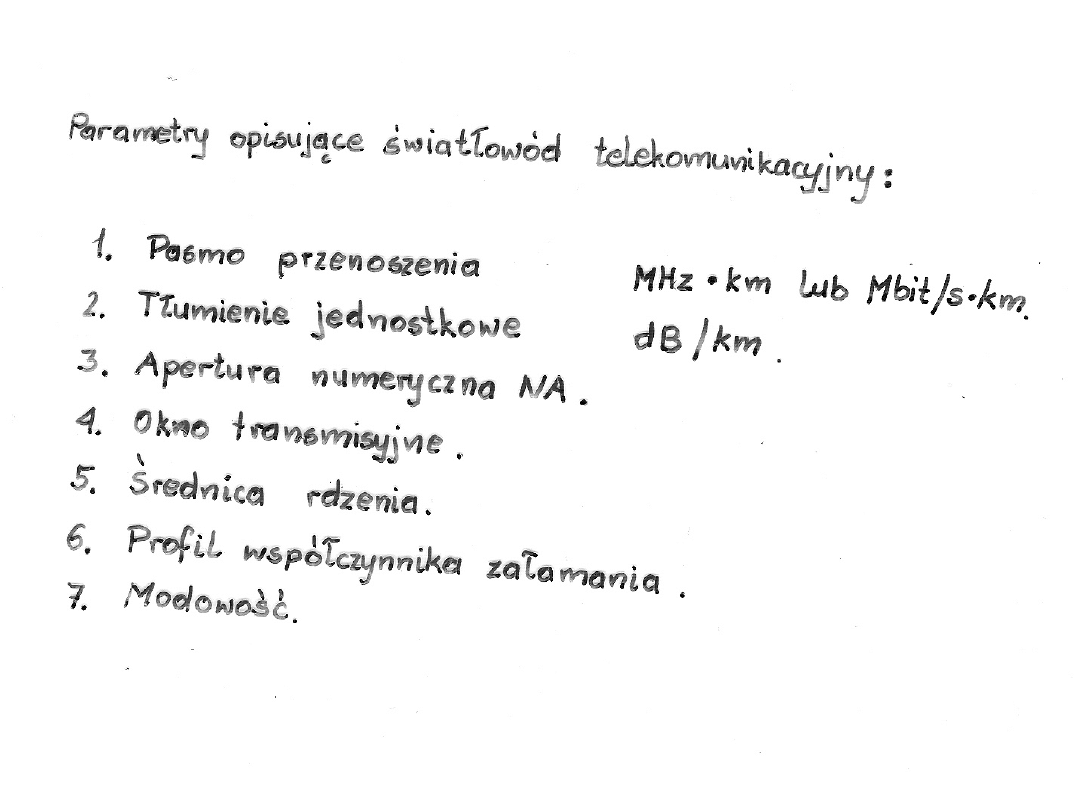 Parametry opisujące światłowód telekomunikacyjny:
1. Pasmo przenoszenia MHz • km lub Mbit/s•km.
2. Tłumienie jednostkowe dB/km.
3. Apertura numeryczna NA.
4. Okno transmisyjne.
5. Średnica rdzenia.
6. Profil współczynnika załamania.
7. Modowość.